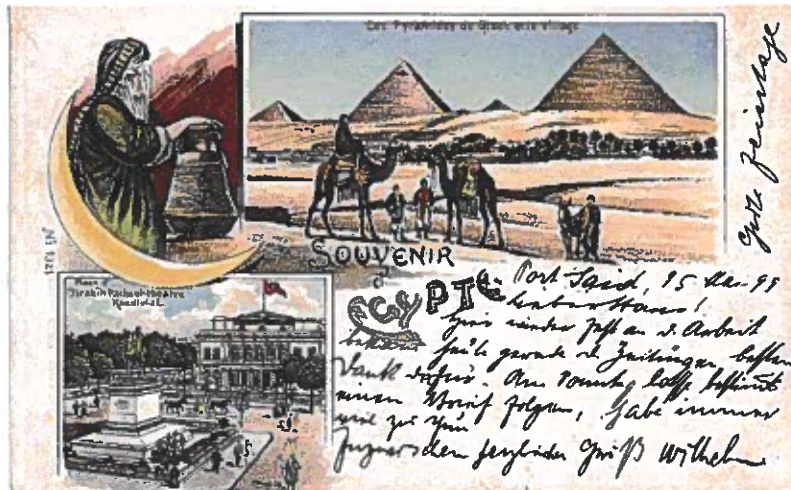 Les Pyramides de Gizeh et le village
SOUVENIR
d'
EGYPTE
Place
Ibrahim Pacha et théâtre
Khédivial.
Gute Feiertage
Port-Said, 15 99
Lieber Hans!
wieder fest an d. Arbeit
heute gerade die Zeitungen besten
Dank dafür. Am Sonntag bestimmt
einen Brief folgen, habe immer
viel zu thun
herzlichen Gruß Wilhelm